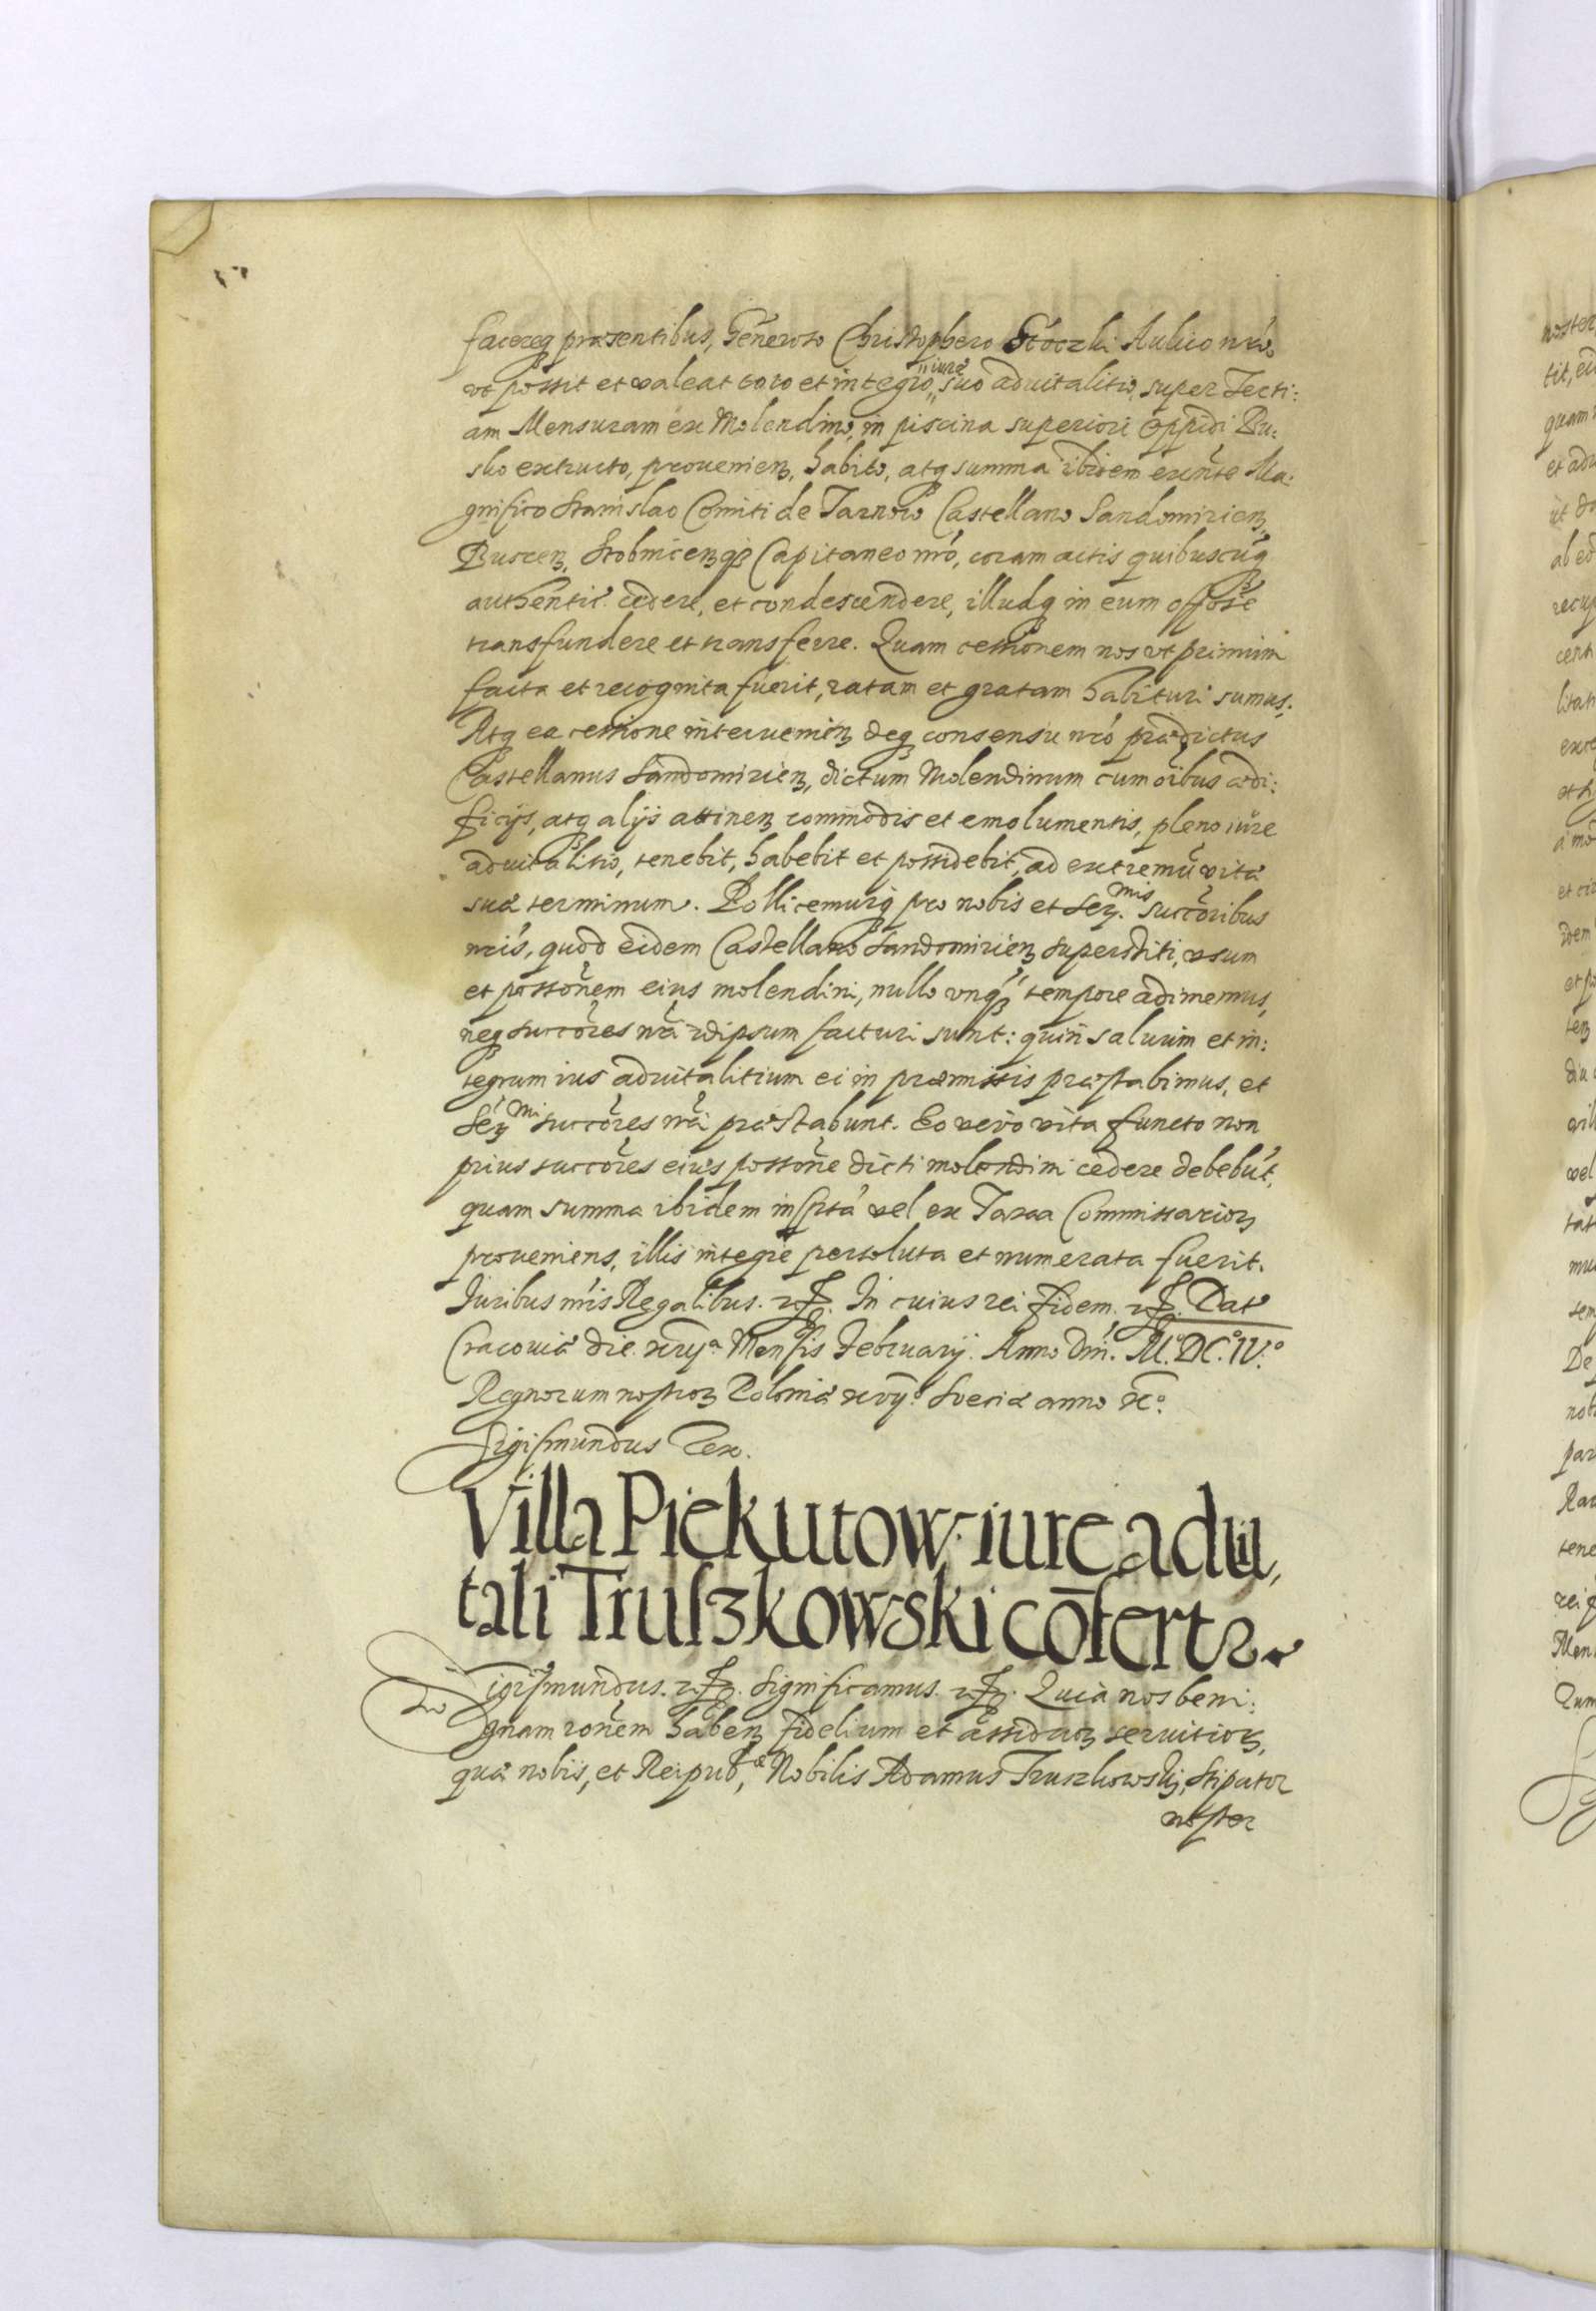 facereq praesentibus, Generoso Christophero Stoczki Aulico nrō,
vt possit et valeat toto et integro iure suo aduitalitio, super Terti:
am Mensuram ex Molendino, in piscina superiori Oppidi Bu:
sko extructo, prouenien, habito, atq summa ibidem existente Ma:
gnifico Stanislao Comiti de Tarnow Castellano Sandomirien,
Buscen, Stobnicenq Capitaneo nrō, coram actis quibuscūq
authentic̄ cedere, et condescendere, illudq in eum
transfundere et transferre. Quam cessionem nos vt primum
facta et recognita fuerit, ratam et gratam habituri sumus;
Atq ea cessione interuenien deq consensu nrō praedictus
Castellanus Sandomirien, dictum Molendinum cum oībus aedi:
ficijs, atq alijs attinen commodis et emolumentis, pleno iure
aduitalitio, tenebit, habebit et possidebit, ad extremū vitae
suae terminum. Pollicemurq pro nobis et Ser.mis succōribus
nrīs, quod eidem Castellano Sandomirien superstiti, vsum
et possōnem eius molendini, nullo vnq tempore adimemus,
neq succōres nrī idipsum facturi sunt: quin saluum et in:
tegrum ius aduitalitium ei in praemissis praestabimus, et
Ser.mi succōres nrī praestabunt. Eo vero vita functo non
prius succōres eius possōne dicti molendini cedere debebūt,
quam summa ibidem inscpta vel ex Taxa Commissarior
proueniens, illis integre persoluta et numerata fuerit.
Iuribus nrīs Regalibus. etc. In cuius rei fidem. etc. Dat
Cracouiae die Mensis February. Anno Dni. M.DC.IV.o
Regnorum nostror Poloniae xvij.o Sveciae anno xo.
Sigismundus Rex.
Villa Piekutow iure adui,
tali Truszkowski cōfertr.
Sigismundus. etc. Significamus. etc. Quia nos beni:
gnam rōnem haben fidelium et assiduor seruitior,
quae nobis, et Reipub,ae Nobilis Adamus Truszkowskj, Stipator
noster